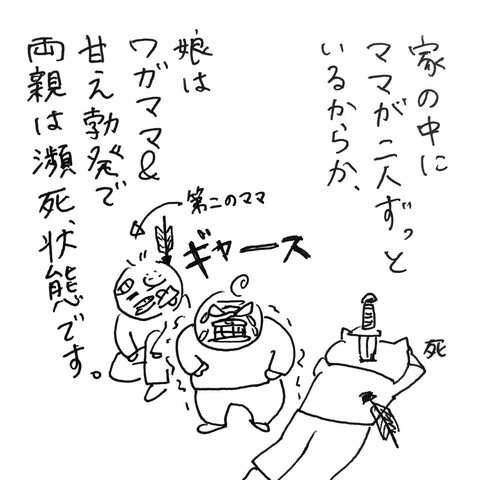 家の中に
ママが二人ずっと
いるからか、
娘は
ワガママ&
甘え勃発で
両親は瀕死状態です。
第二のママ
ギャース
死